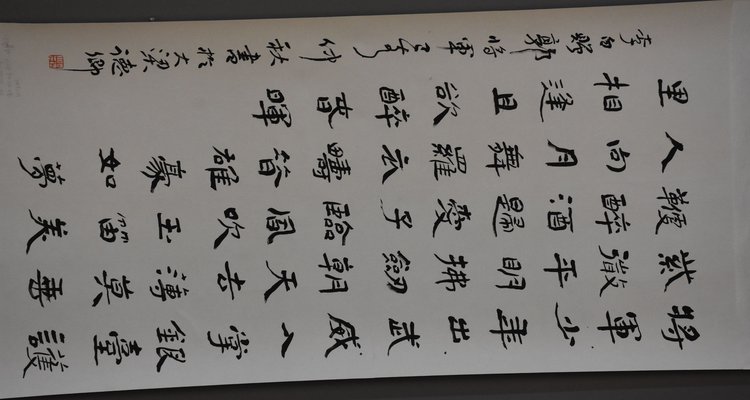 將軍少年出武威入掌銀臺護
紫微平明拂劒朝天去薄莫垂
鞭醉酒歸愛子臨風吹玉笛美
人向月舞羅衣疇昔雄豪如夢
里相逢且欲醉春暉
李白贈郭將軍 仲秋書於大梁德卿